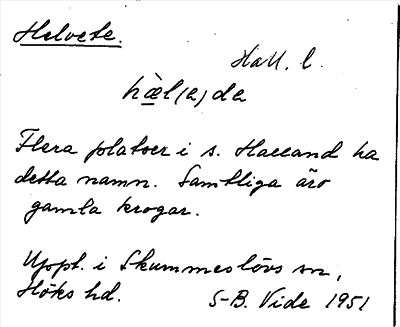 Helvete.
Hall. l.
hæl(e)da
Flera platser i s. Halland ha
detta namn. Samtliga äro
gamla krogar.
Uppt. i Skummeslövs sn,
Höks hd.
S-B. Vide 1951